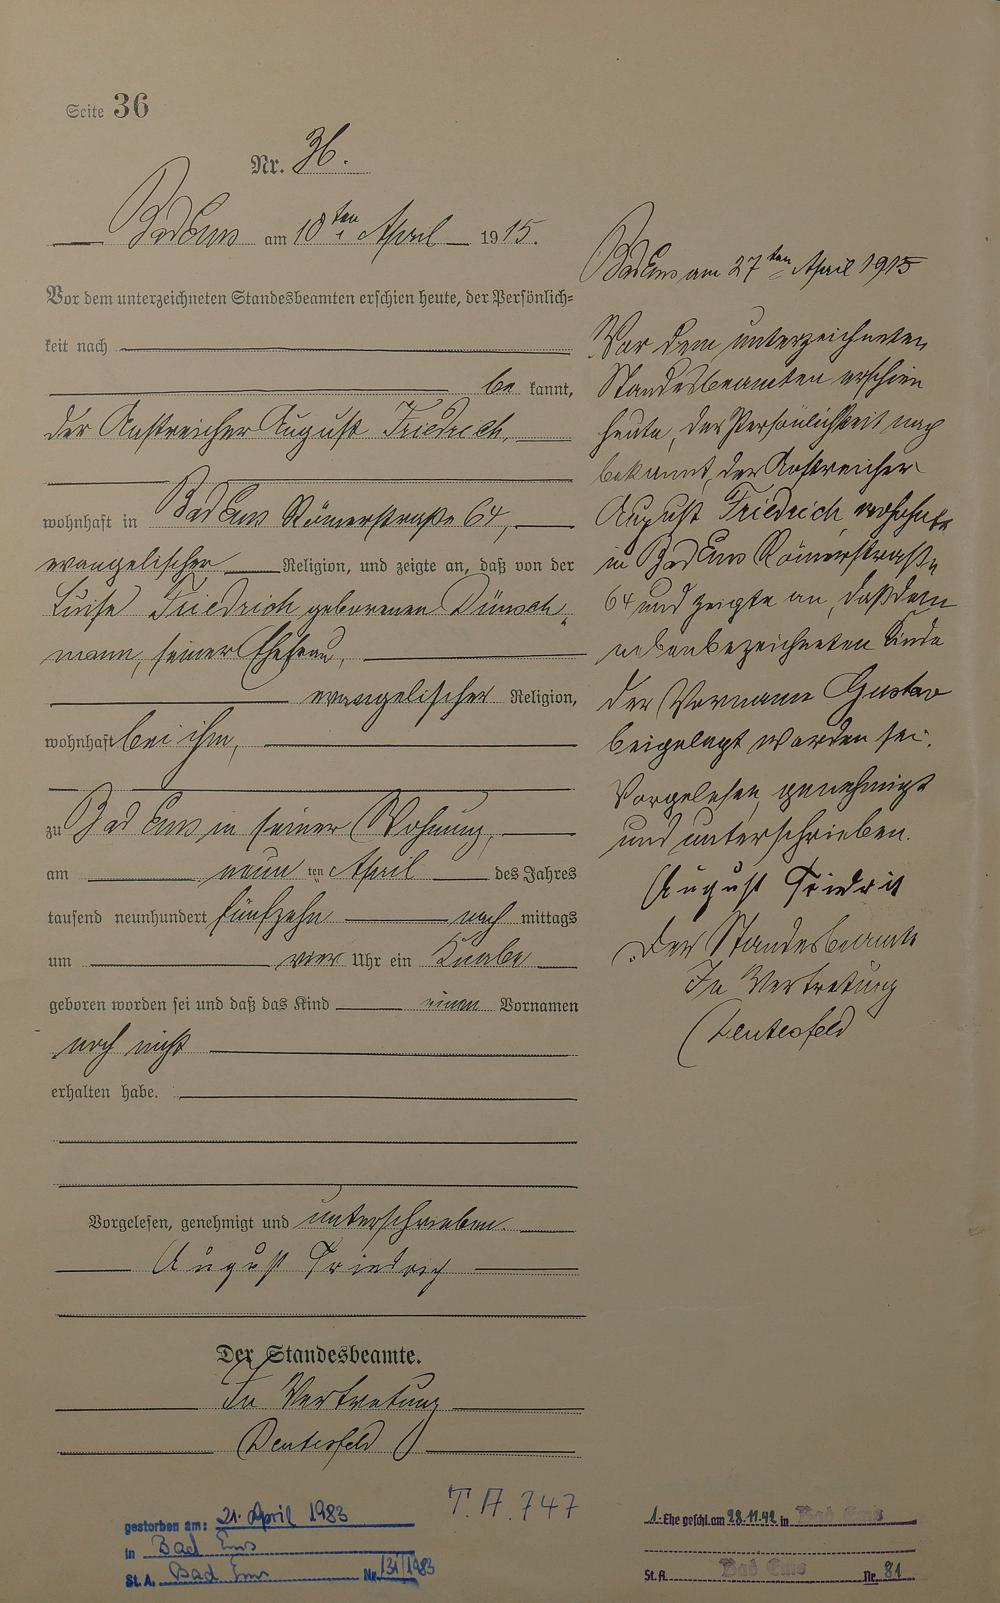 Seite 36
Nr. 36.
Bad Ems am 10ten April 1915.
Vor dem unterzeichneten Standesbeamten erschien heute, der Persönlich=
keit nach
be kannt,
der Anstreicher August Friedrich,
wohnhaft in Bad Ems Römerstraße 64,
evangelischer Religion, und zeigte an, daß von der
Luise Friedrich geborenen Dünsch„
mann, seiner Ehefrau,
evangelischer Religion,
wohnhaft bei ihm,
zu Bad Ems in seiner Wohnung,
am neun ten April des Jahres
tausend neunhundert fünfzehn nach mittags
um vier Uhr ein Knabe
geboren worden sei und daß das Kind einen Vornamen
noch nicht
erhalten habe.
Vorgelesen, genehmigt und unterschrieben.
August Friedrich
Der Standesbeamte.
In Vertretung
Bad Ems am 27ten April 1915
Vor dem unterzeichneten
Standesbeamten erschien
heute, der Persönlichkeit nach
bekannt, der Anstreicher
August Friedrich wohnhaft
in Bad Ems Römerstraße
64 und zeigte an, daß dem
nebenbezeichneten Kinde
der Vorname Gustav
beigelegt worden sei.
Vorgelesen, genehmigt
und unterschrieben.
August Friedrich
Der Standesbeamte
In Vertretung
T.A. 747
gestorben am: 21. April 1983
in Bad Ems
St. A. Bad Ems Nr. 131/1983
1. Ehe geschl. am 28.11.42 in Bad Ems
St. A. Bad Ems Nr. 81